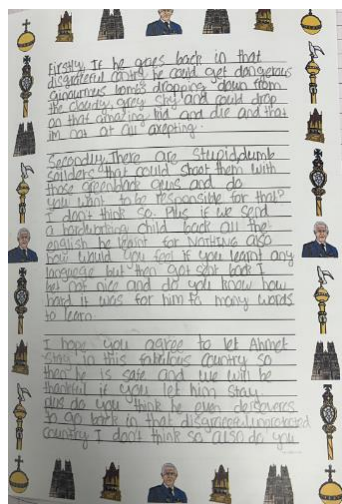 Firstly, If he goes back in that
disgraceful contry he could get dangerous
ginournus bombs dropping down from
the cloudy, grey sky and could drop
on that amazing kid and die and that
im not at all axepting.
Secondly, There are stupid, dumb
soilders that could shoot them with
those greenback guns and do
you want to be responsible for that?
I don't think so. Plus if we send
a hardworking child back all the
english he learnt for Nothing also
how would you feel if you learnt any
language but then got sent back I
bet not nice and do you know how
hard it was for him to many words
to learn.
I hope you agree to let Ahmet
Stay in this fabulous country so
then he is safe and we will be
thankful if you let him stay
plus do you think he even deserveres
to go back in that disgraceful, unprotected
country I don't think so also do you